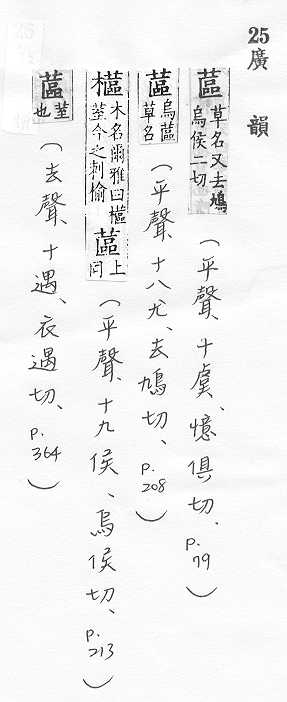 25廣韻
蓲草名又去鳩烏侯二切(平聲、十虞、憶俱切、p.79)
蓲烏蓲草名(平聲、十八尤、去鳩切、p.208)
櫙木名爾雅曰櫙荎今之刺榆蓲上同(平聲、十九侯、烏侯切、p.213)
蓲荎也(去聲、十遇、衣遇切、p.364)